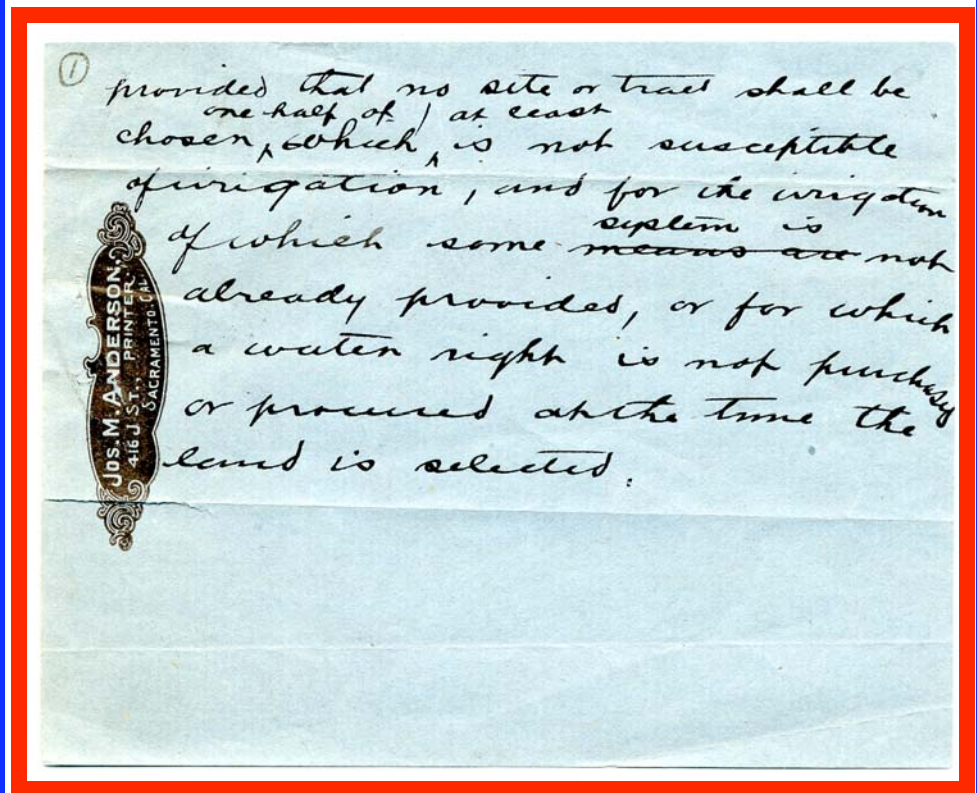 ①
provided that no site or tract shall be
one half of / at least
chosen ^ which ^ is not susceptible
of irrigation, and for the irrigation
system is
of which some ~~means are~~ not
already provided, or for which
a water right is not purchased
or procured at the time the
land is selected.
JOS. M. ANDERSON,
416 J ST., PRINTER.
SACRAMENTO. CAL.